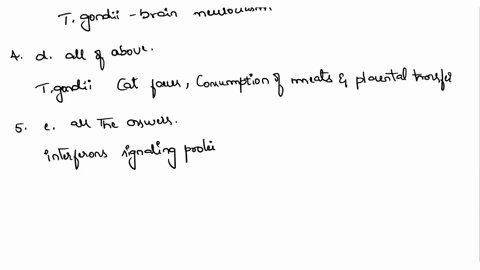 T. gondii - brain
4. d. all of above.
T. gondii Cat feces, Consumption of meats & placental transfer
5. e. all the answers.
interferons signaling protei